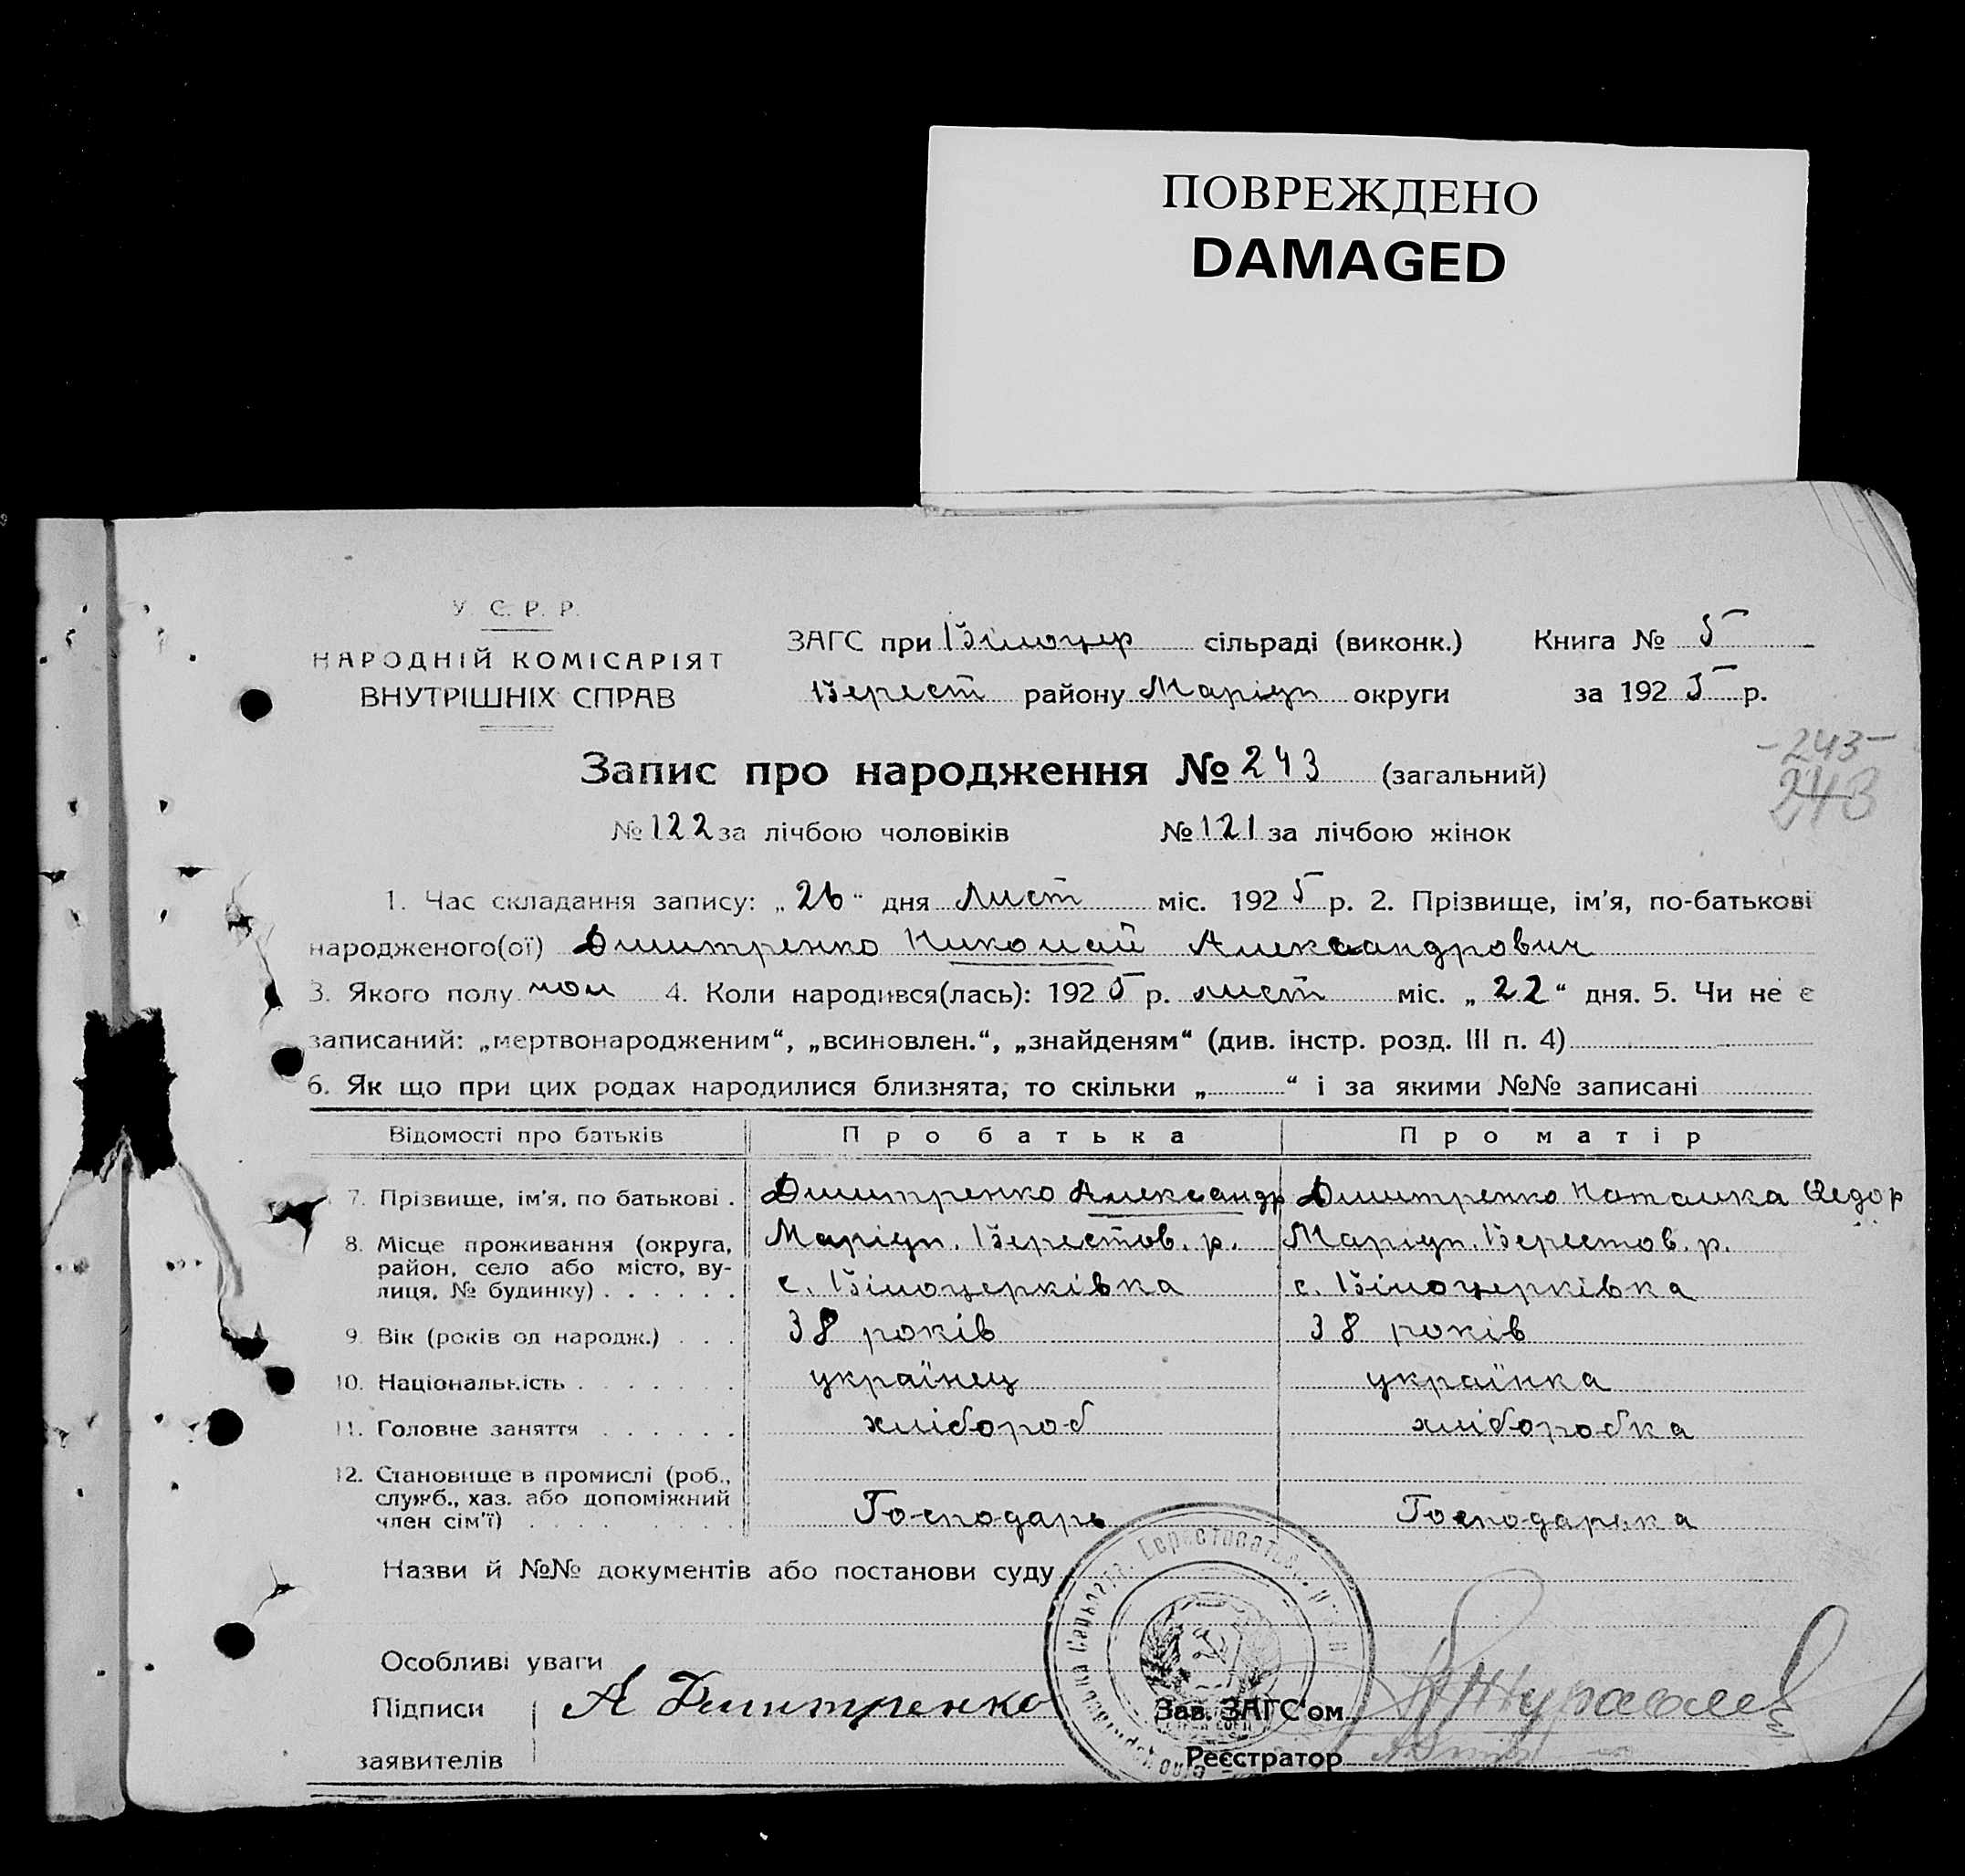 ПОВРЕЖДЕНО
DAMAGED
У. С. Р. Р.
НАРОДНІЙ КОМІСАРІЯТ
ВНУТРІШНІХ СПРАВ
ЗАГС при Білоцер сільраді (виконк.) Книга № 5
Верест району Маріуп округи за 1925 р.
Запис про народження № 243 (загальний)
-243-
243
№ 122 за лічбою чоловіків № 121 за лічбою жінок
1. Час складання запису: „26“ дня лист міс. 1925 р. 2. Прізвище, ім'я, по-батькові
народженого(ої) Дмитренко Николай Александрович
3. Якого полу чол 4. Коли народився(лась): 1925 р. лист міс. „22“ дня. 5. Чи не є
записаний: „мертвонародженим“, „всиновлен.“, „знайденям“ (див. інстр. розд. III п. 4)
6. Як що при цих родах народилися близнята, то скільки „ “ і за якими №№ записані
Відомості про батьків Про батька Про матір
7. Прізвище, ім'я, по батькові . Дмитренко Александр Дмитренко Наталка Федор
8. Місце проживання (округа, Маріуп. Берестов. р. Маріуп. Берестов. р.
район, село або місто, ву-
лиця, № будинку) . . . . . . с. Білоцерківка с. Білоцерківка
9. Вік (років од народж.) . . . 38 років 38 років
10. Національність . . . . . . . українец українка
11. Головне заняття . . . . . . хлібороб хліборобка
12. Становище в промислі (роб.,
служб., хаз. або допоміжний
член сім'ї) . . . . . . . . . Господарь Господарька
Назви й №№ документів або постанови суду
Особливі уваги
Підписи А Дмитренко Зав. ЗАГС'ом Журавлев
заявителів Реєстратор